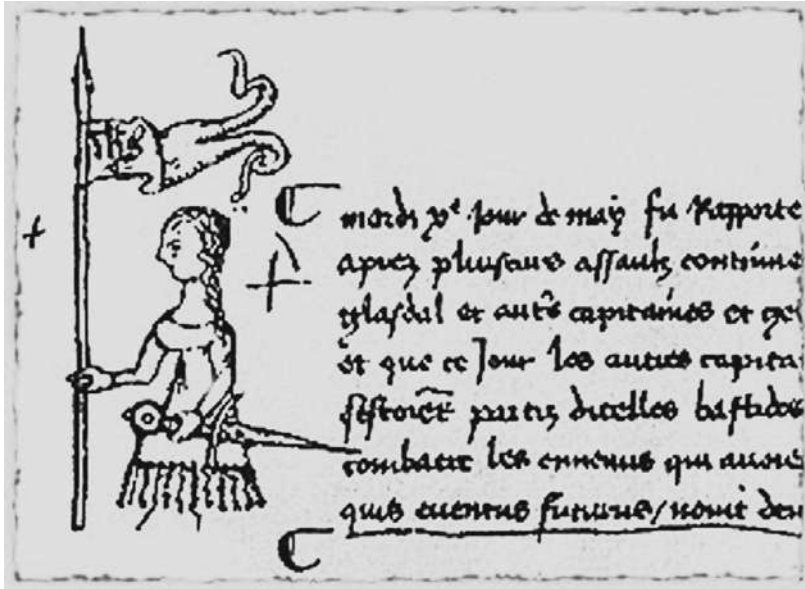 mardi xᵉ Jour de may fu Rapporte
aprez pluseurs assaulz continue
glasdal et autrs capitaines et ge
et que ce Jour les autres capita
partiz dicelles bastides
combatre les ennemis qui avoie
quis eventus futurus / novit deu